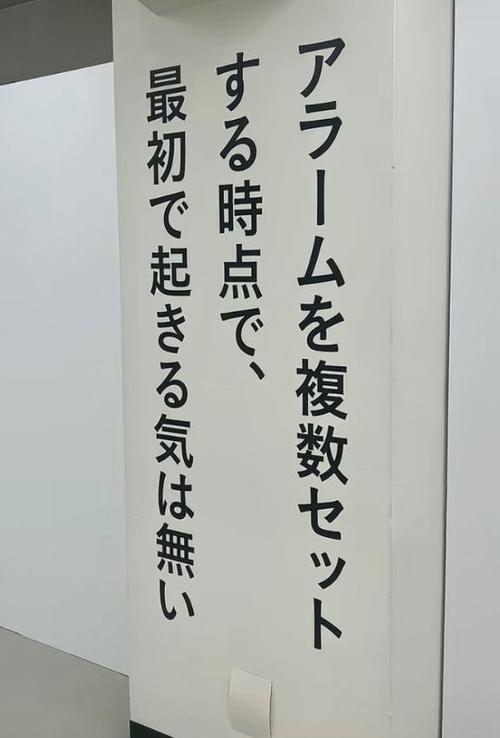 アラームを複数セット
する時点で、
最初で起きる気は無い